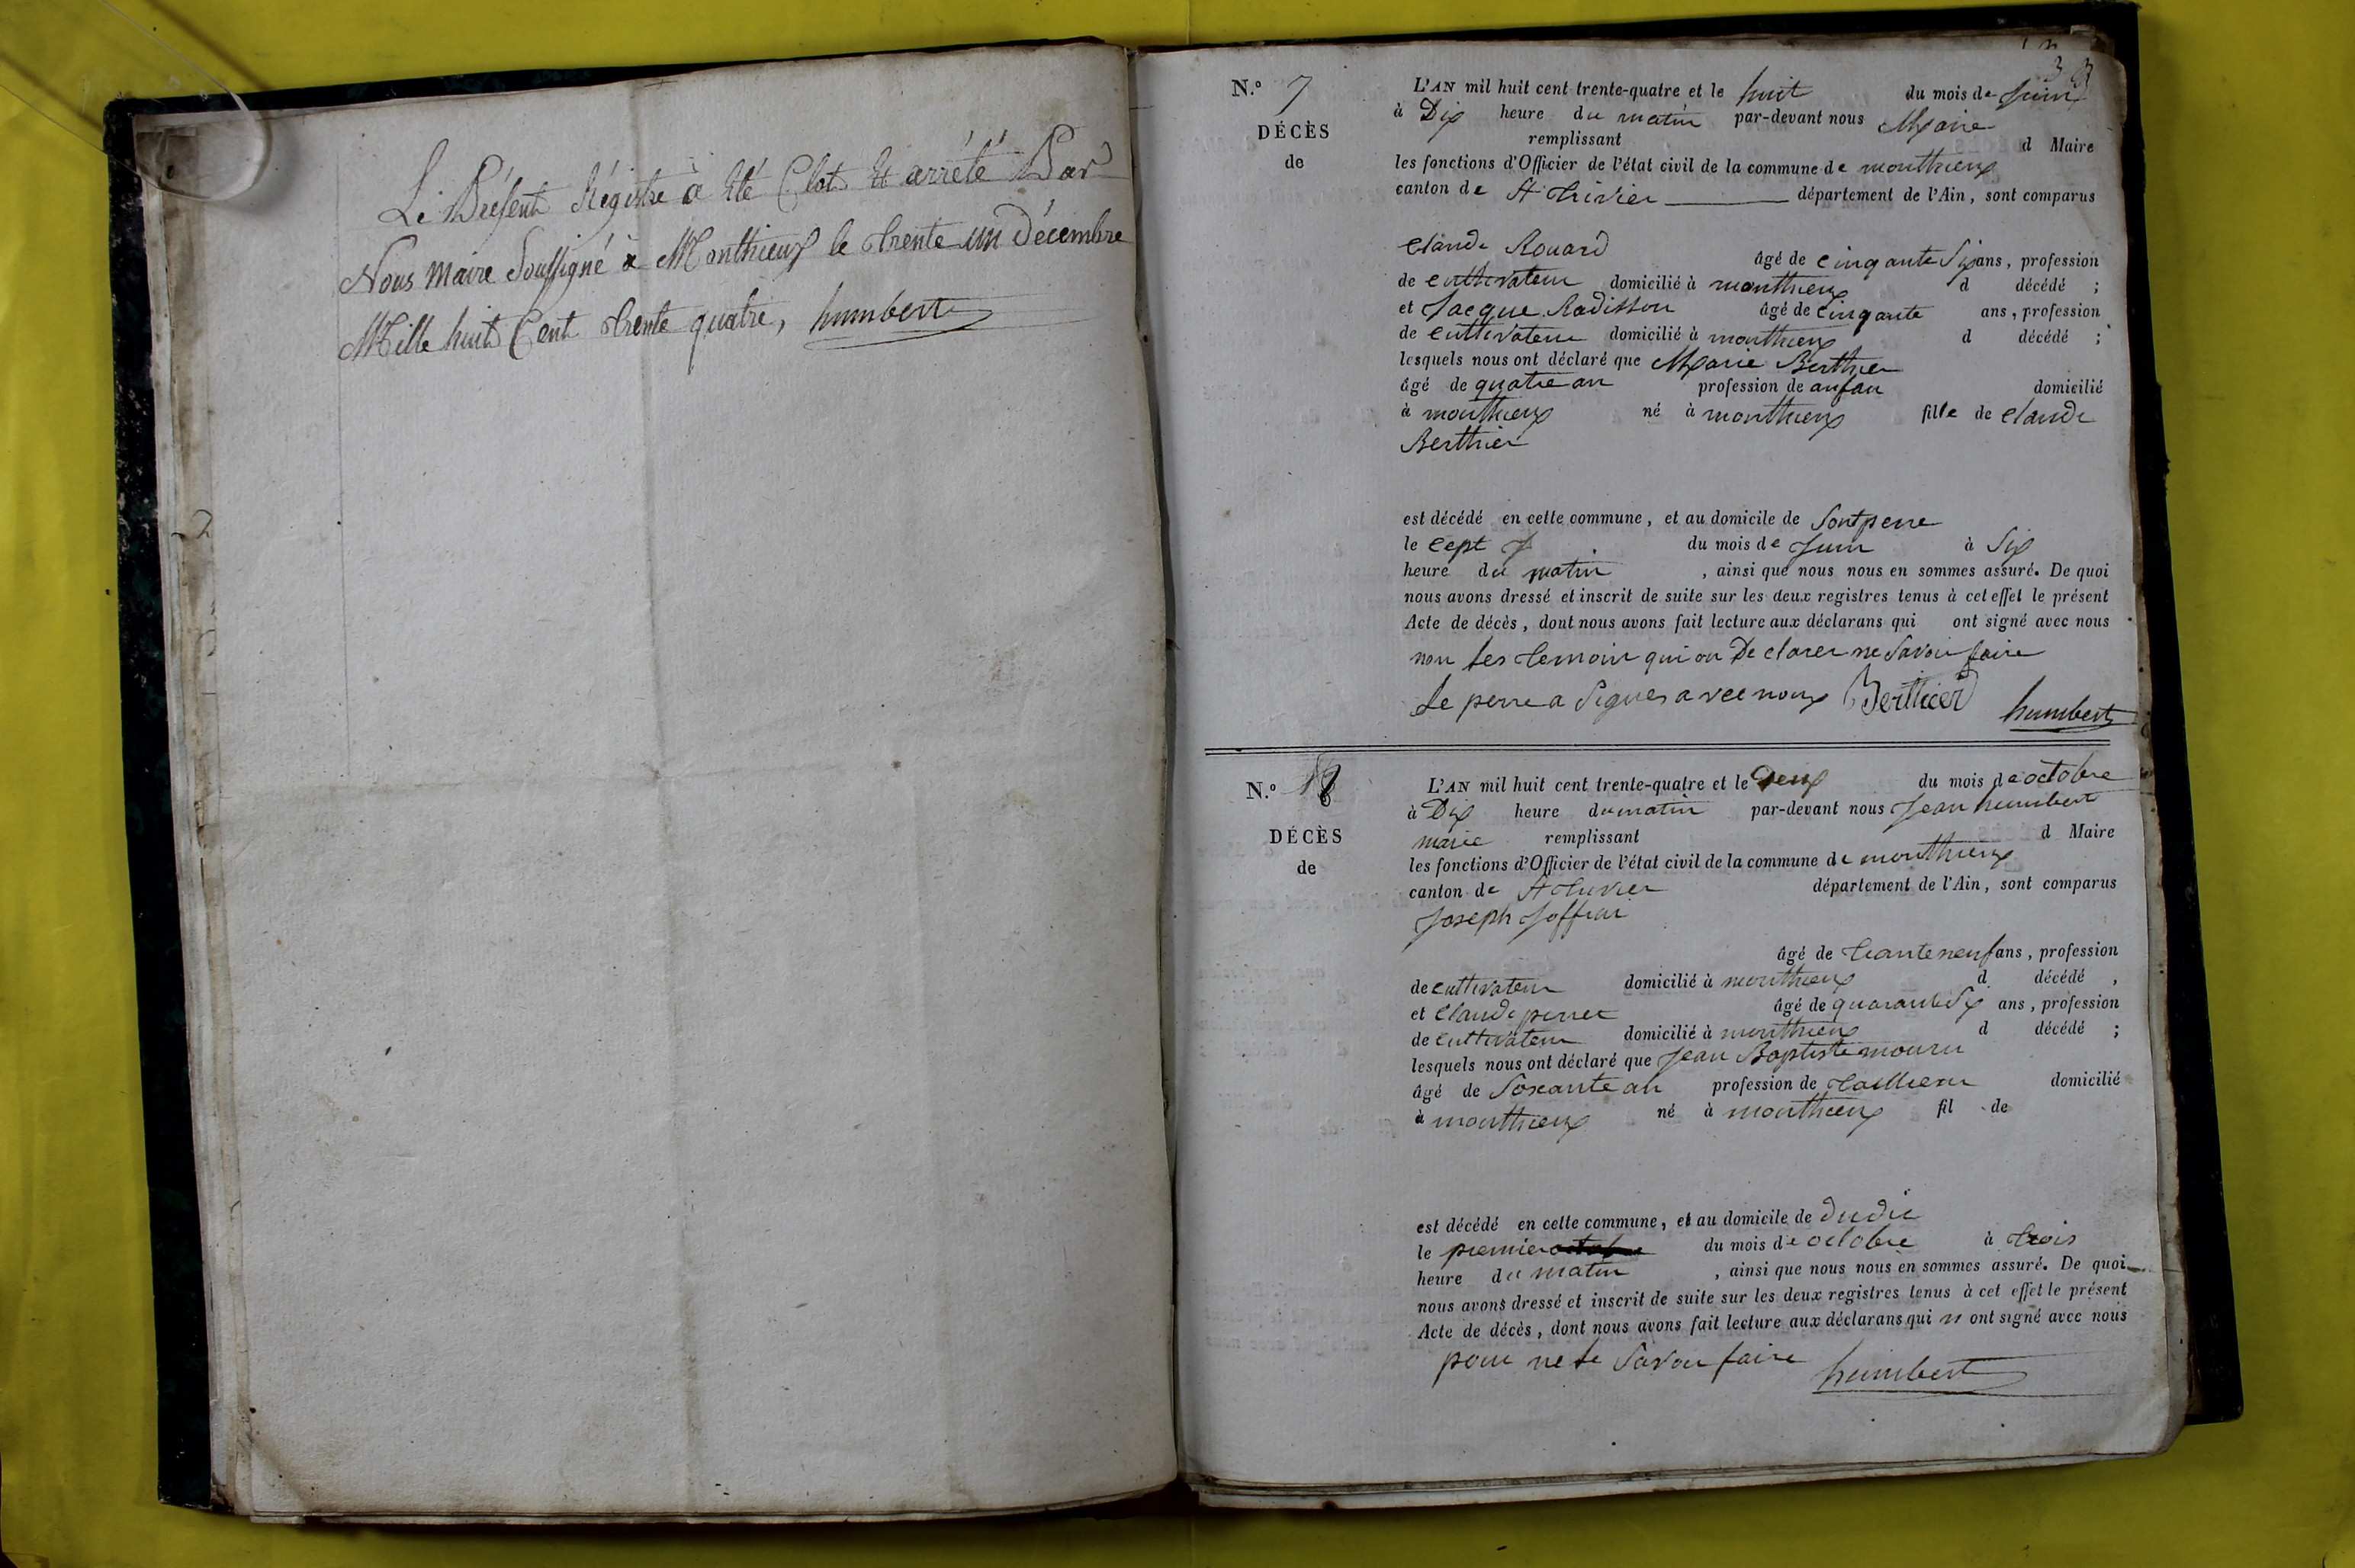 Le Présent Régistre à été Clot Et arrété Par
Nous Maire Soussigné à Monthieux le trente un Décembre
Mille huit Cent trente quatre, humbert
N.° 7
DÉCÈS
de
L'AN mil huit cent trente-quatre et le huit du mois de Juin
à Dix heure du matin par-devant nous Maire
remplissant d Maire
les fonctions d'Officier de l'état civil de la commune de monthieux
canton de St trivier département de l'Ain, sont comparus
Claude Rouard âgé de cinqante Six ans, profession
de cultivateur domicilié à monthieux d décédé ;
et Jacque Radisson âgé de cinqante ans, profession
de cultivateur domicilié à monthieux d décédé ;
lesquels nous ont déclaré que Marie Berthier
âgé de quatre an profession de anfan domicilié
à monthieux né à monthieux fille de claude
Berthier
est décédé en cette commune, et au domicile de Sont perre
le cept du mois de Juin à Six
heure du matin , ainsi que nous nous en sommes assuré. De quoi
nous avons dressé et inscrit de suite sur les deux registres tenus à cet effet le présent
Acte de décès, dont nous avons fait lecture aux déclarans qui ont signé avec nous
non les temoin qui on De clarer ne Savoir faire
Le perre a Signer avec nous Berthier humbert
N.° 8
DÉCÈS
de
L'AN mil huit cent trente-quatre et le Deux du mois de octobre
à Dix heure du matin par-devant nous Jean humbert
maire remplissant d Maire
les fonctions d'Officier de l'état civil de la commune de monthieux
canton de St trivier département de l'Ain, sont comparus
Joseph Joffrai
âgé de trante neuf ans, profession
de cultivateur domicilié à monthieux d décédé ,
et Claude perret âgé de quarante Six ans, profession
de cultivateur domicilié à monthieux d décédé ;
lesquels nous ont déclaré que Jean Baptiste mouru
âgé de Soxante an profession de taillieur domicilié
à monthieux né à monthieux fil de
est décédé en cette commune, et au domicile de dudit
le premier du mois de octobre à trois
heure du matin , ainsi que nous nous en sommes assuré. De quoi
nous avons dressé et inscrit de suite sur les deux registres tenus à cet effet le présent
Acte de décès, dont nous avons fait lecture aux déclarans qui n ont signé avec nous
pour ne le Savoir faire humbert